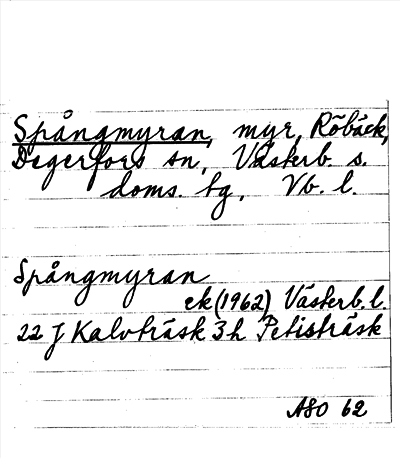 Spångmyran, myr, Röbäck,
Degerfors sn, Västerb. s.
doms. tg, Vb. l.
Spångmyran
ek (1962) Västerb. l
22 J Kalvträsk 3h Petisträsk
ASO 62